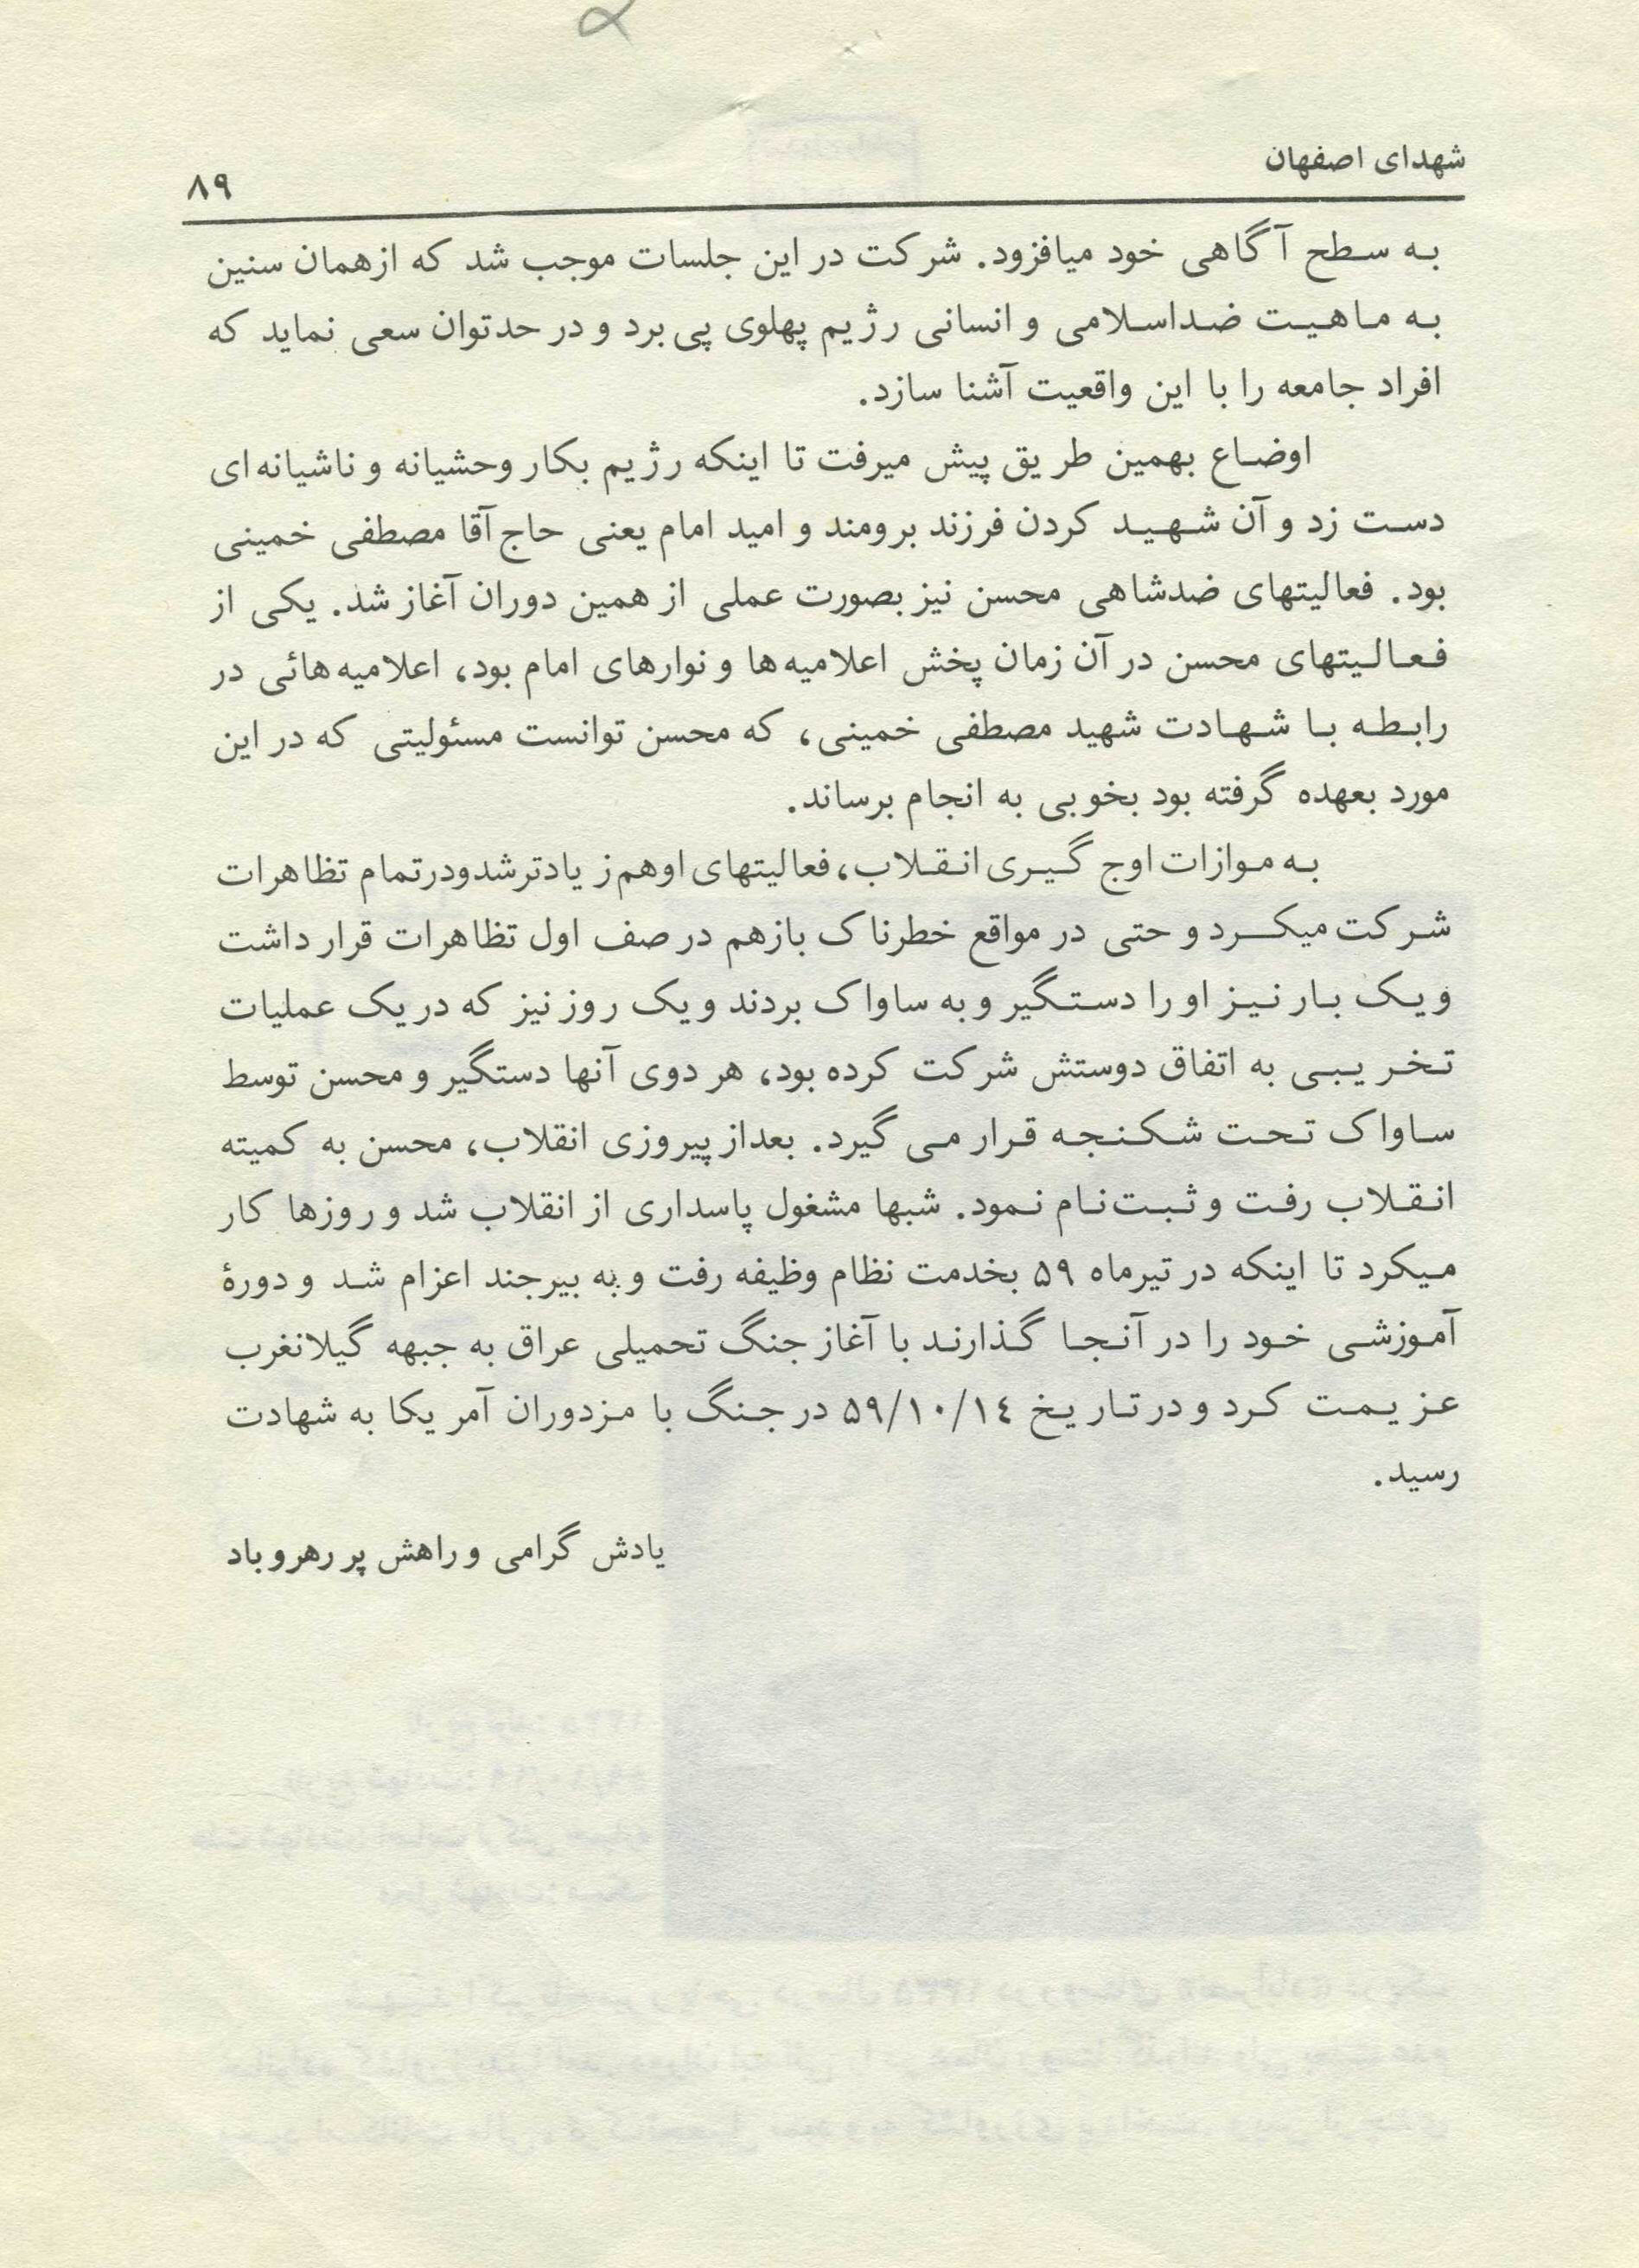 شهدای اصفهان
۸۹
به سطح آگاهی خود میافزود. شرکت در این جلسات موجب شد که ازهمان سنین
به ماهیت ضداسلامی و انسانی رژیم پهلوی پی برد و در حدتوان سعی نماید که
افراد جامعه را با این واقعیت آشنا سازد.
اوضاع بهمین طریق پیش میرفت تا اینکه رژیم بکار وحشیانه و ناشیانه‌ای
دست زد و آن شهید کردن فرزند برومند و امید امام یعنی حاج آقا مصطفی خمینی
بود. فعالیتهای ضدشاهی محسن نیز بصورت عملی از همین دوران آغاز شد. یکی از
فعالیتهای محسن در آن زمان پخش اعلامیه‌ها و نوارهای امام بود، اعلامیه‌هائی در
رابطه با شهادت شهید مصطفی خمینی، که محسن توانست مسئولیتی که در این
مورد بعهده گرفته بود بخوبی به انجام برساند.
به موازات اوج گیری انقلاب، فعالیتهای او هم زیادتر شد و در تمام تظاهرات
شرکت میکرد و حتی در مواقع خطرناک بازهم در صف اول تظاهرات قرار داشت
و یک بار نیز او را دستگیر و به ساواک بردند و یک روز نیز که در یک عملیات
تخریبی به اتفاق دوستش شرکت کرده بود، هر دوی آنها دستگیر و محسن توسط
ساواک تحت شکنجه قرار می گیرد. بعداز پیروزی انقلاب، محسن به کمیته
انقلاب رفت و ثبت نام نمود. شبها مشغول پاسداری از انقلاب شد و روزها کار
میکرد تا اینکه در تیرماه ۵۹ بخدمت نظام وظیفه رفت و به بیرجند اعزام شد و دورهٔ
آموزشی خود را در آنجا گذارند با آغاز جنگ تحمیلی عراق به جبهه گیلانغرب
عزیمت کرد و در تاریخ ۵۹/۱۰/۱۴ در جنگ با مزدوران آمریکا به شهادت
رسید.
یادش گرامی و راهش پر رهرو باد